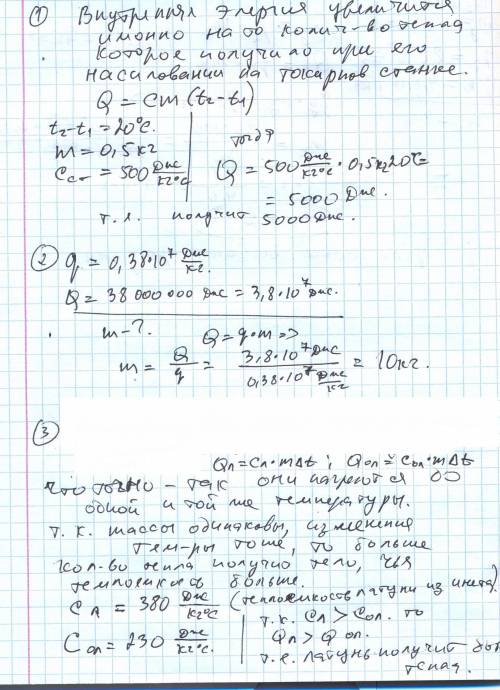 ① Внутренняя энергия увеличится
именно на то колич-во тепла
которое получило при его
на токарном станке.
Q = cm (t₂-t₁)
t₂-t₁ = 20°C.
m = 0,5 кг
Cст = 500 Дж/кг°C
тогда
Q = 500 Дж/кг°C · 0,5кг20°C=
= 5000 Дж.
т.е. получит 5000 Дж.
② q = 0,38·10⁷ Дж/кг.
Q = 38 000 000 Дж = 3,8·10⁷ Дж.
m - ?. Q = q·m =>
m = Q/q = 3,8·10⁷ Дж / 0,38·10⁷ Дж/кг = 10 кг.
③
Qл = Cл·mΔt ; Qол = Cол·mΔt
что точно - так они нагреются до
одной и той же температуры.
т.к. массы одинаковы, изменения
тем-ры тоже, то больше
кол-во тепла получит тело, чья
теплоемкость больше.
Cл = 380 Дж/кг°C (теплоемкость латуни из инета).
Cол = 230 Дж/кг°C.
т.к. Cл > Cол. то
Qл > Q ол.
т.е. латунь получит
тепла.